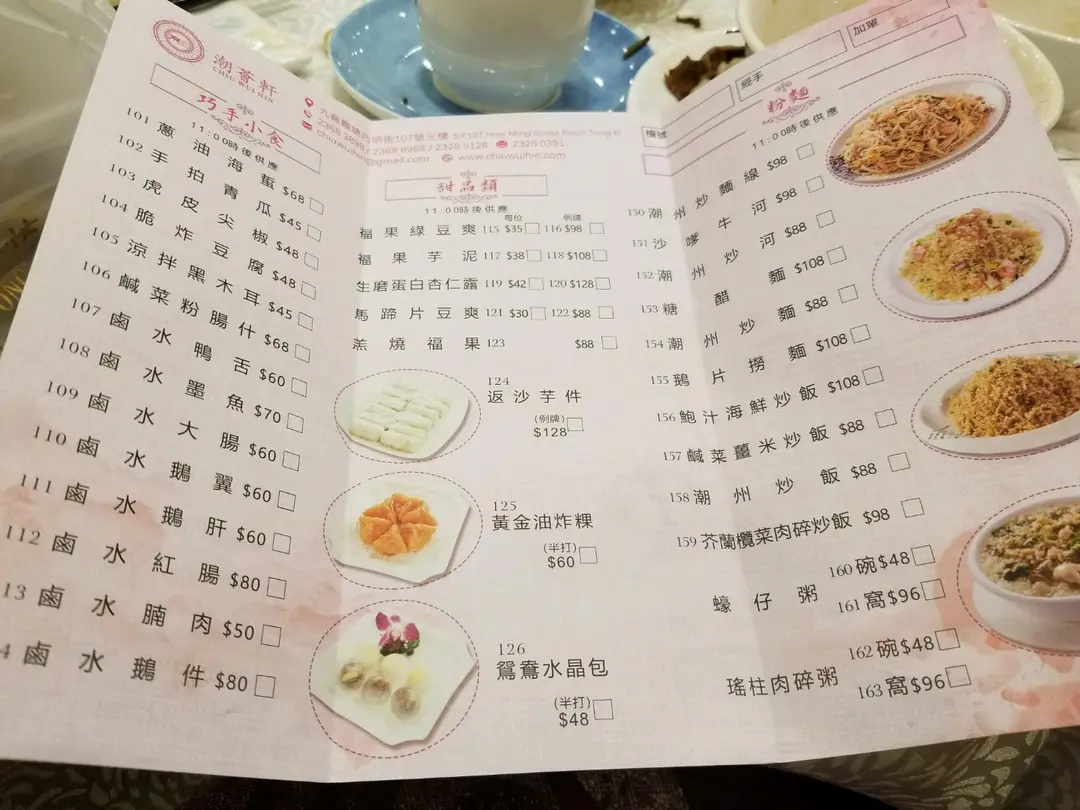 潮薈軒
CHIU WUI HIN
巧手小食
11:00時後供應
101 蔥油海蜇 $68
102 手拍青瓜 $45
103 虎皮尖椒 $48
104 脆炸豆腐 $48
105 涼拌黑木耳 $45
106 鹹菜粉腸什 $68
107 鹵水鴨舌 $60
108 鹵水墨魚 $70
109 鹵水大腸 $60
110 鹵水鵝翼 $60
111 鹵水鵝肝 $60
112 鹵水紅腸 $80
13 鹵水腩肉 $50
4 鹵水鵝件 $80
107號三樓
2368 8968 / 2328 9128 2328 0391
chiuwuihin@gmail.com www.chiuwuihin.com
甜品類
11:00時後供應
每位 例牌
福果綠豆爽 115 $35 116 $98
福果芋泥 117 $38 118 $108
生磨蛋白杏仁露 119 $42 120 $128
馬蹄片豆爽 121 $30 122 $88
羔燒福果 123 $88
124
返沙芋件
(例牌)
$128
125
黃金油炸粿
(半打)
$60
126
鴛鴦水晶包
(半打)
$48
經手
加單
檯號
粉麵
11:00時後供應
150 潮州炒麵線 $98
151 沙嗲牛河 $98
152 潮州炒河 $88
153 糖醋麵 $108
154 潮州炒麵 $88
155 鵝片撈麵 $108
156 鮑汁海鮮炒飯 $108
157 鹹菜薑米炒飯 $88
158 潮州炒飯 $88
159 芥蘭欖菜肉碎炒飯 $98
蠔仔粥 160 碗 $48
161 窩 $96
瑤柱肉碎粥 162 碗 $48
163 窩 $96